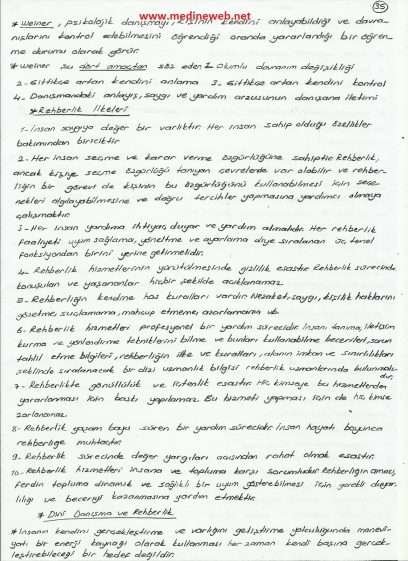 www.medineweb.net
35
* Weiner, psikolojik danışmayı, kişinin kendini anlayabildiği ve davra-
nışlarını kontrol edebilmesini öğrendiği oranda yararlandığı bir öğren-
me durumu olarak görür
* Weiner şu dört amaçtan söz eden 1- Olumlu davranım değişikliği
2- Gittikçe artan kendini anlama 3- Gittikçe artan kendini kontrol
4- Danışmandaki anlayış, saygı ve yardım arzusunun danışana iletimi
* Rehberlik İlkeleri
1- İnsan saygıya değer bir varlıktır. Her insan sahip olduğu özellikler
bakımından biriciktir
2- Her insan seçme ve karar verme özgürlüğüne sahiptir. Rehberlik,
ancak kişiye seçme özgürlüğü tanıyan çevrelerde var olabilir ve rehber-
liğin bir görevi de kişinin bu özgürlüğünü kullanabilmesi için seçe-
nekleri algılayabilmesine ve doğru tercihler yapmasına yardımcı olmaya
çalışmaktır
3- Her insan yardıma ihtiyaç duyar ve yardım almalıdır. Her rehberlik
faaliyeti uyum sağlama, yöneltme ve ayarlama diye sıralanan üç temel
fonksiyondan birini yerine getirmelidir.
4- Rehberlik hizmetlerinin yürütülmesinde gizlilik esastır. Rehberlik sürecinde
konuşulan ve yaşananlar hiçbir şekilde açıklanamaz
5- Rehberliğin kendine has kuralları vardır. Nezaket, saygı, kişilik haklarını
gözetme, suçlamama, mahcup etmeme, azarlamama vb.
6- Rehberlik hizmetleri profesyonel bir yardım sürecidir. İnsan tanıma, iletişim
kurma ve yönlendirme tekniklerini bilme ve bunları kullanabilme becerileri, sorun
tahlil etme bilgileri, rehberliğin ilke ve kuralları, alanın imkan ve sınırlılıkları
şeklinde sıralanacak bir dizi uzmanlık bilgisi rehberlik uzmanlarında bulunmalı-
dır.
7- Rehberlikte gönüllülük ve içtenlik esastır. Hiç kimseye bu hizmetlerden
yararlanması için baskı yapılamaz. Bu hizmeti yapması için de hiç kimse
zorlanamaz.
8- Rehberlik yaşam boyu süren bir yardım sürecidir. İnsan hayatı boyunca
rehberliğe muhtaçtır.
9- Rehberlik sürecinde değer yargıları açısından rahat olmak esastır.
10- Rehberlik hizmetleri insana ve topluma karşı sorumludur. Rehberliğin amacı,
ferdin topluma dinamik ve sağlıklı bir uyum gösterebilmesi için gerekli duyar-
lılığı ve beceriyi kazanmasına yardım etmektir.
* Dini Danışma ve Rehberlik
* İnsanın kendini gerçekleştirme ve varlığını geliştirme yolculuğunda manevi-
yatı bir enerji kaynağı olarak kullanması her zaman kendi başına gerçek-
leştirebileceği bir hedef değildir.